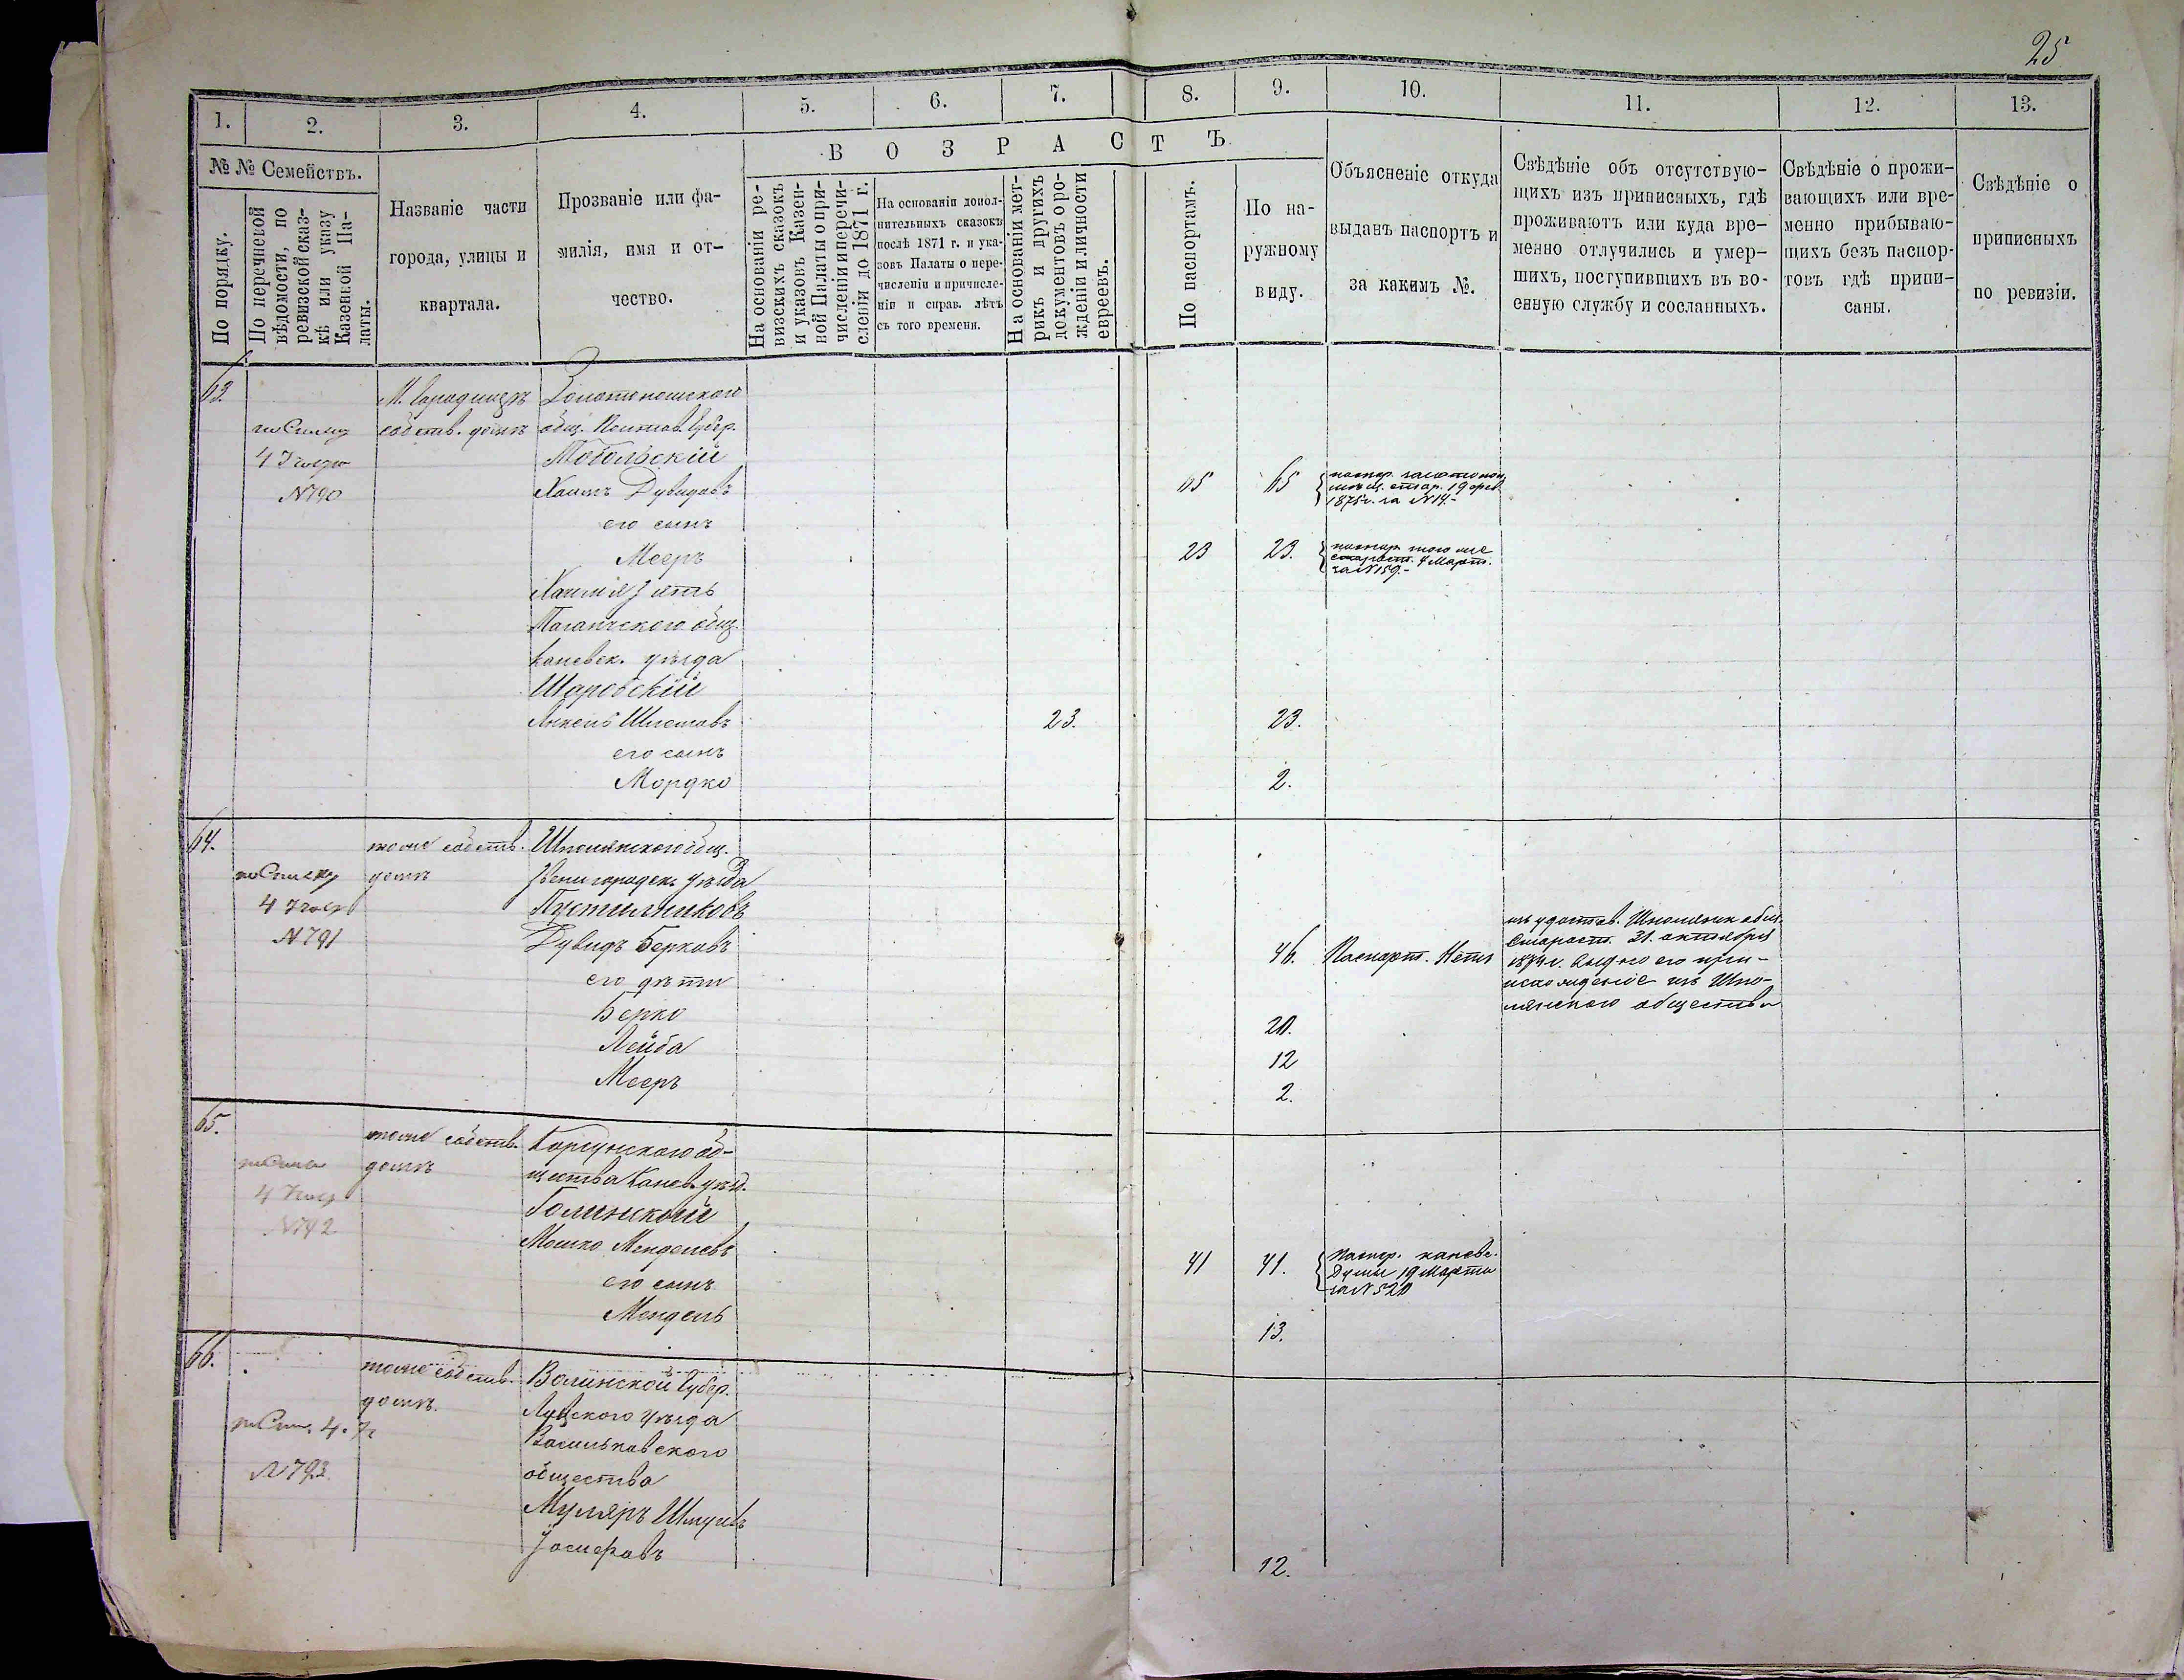 25
1. 2. 3. 4. 5. 6. 7. 8. 9. 10. 11. 12. 13.
№№ Семействъ.
По порядку.
По перечневой
вѣдомости, по
ревизской сказ-
кѣ или указу
Казенной Па-
латы.
Названіе части
города, улицы и
квартала.
Прозваніе или фа-
милія, имя и от-
чество.
ВОЗРАСТЪ
На основаніи ре-
визскихъ сказокъ
и указовъ Казен-
ной Палаты о при-
численіи и перечи-
сленіи до 1871 г.
На основаніи допол-
нительныхъ сказокъ
послѣ 1871 г. и ука-
зовъ Палаты о пере-
численіи и причисле-
ніи и справ. лѣтъ
съ того времени.
На основаніи мет-
рикъ и другихъ
документовъ о ро-
жденіи и личности
евреевъ.
По паспортамъ.
По на-
ружному
виду.
Объясненіе откуда
выданъ паспортъ и
за какимъ №.
Свѣдѣніе объ отсутствую-
щихъ изъ приписныхъ, гдѣ
проживаютъ или куда вре-
менно отлучились и умер-
шихъ, поступившихъ въ во-
енную службу и сосланныхъ.
Свѣдѣніе о прожи-
вающихъ или вре-
менно прибываю-
щихъ безъ паспор-
товъ гдѣ припи-
саны.
Свѣдѣніе о
приписныхъ
по ревизіи.
63.
по Списку
№ 790
М. Городищѣ
собств. домъ
Золотоношского
общ. Полтав. Губер.
Тобольскій
Хаимъ Дувидовъ 65 65
1875 г. за № 14.-
его сынъ
Мееръ 23 23.
пашпр. того же
старост. 4 Март.
за № 159.-
общ.
Каневск. уѣзда
Шаровскій
23. 23.
его сынъ
Мордко 2.
64.
по Списку
№ 791
тоже собств.
домъ
Шполянского общ.
Звенигородск. уѣзда
Пустильниковъ
Дувидъ Берковъ 46. Паспорт. Нетъ
Шполянск. общ.
Старост. 31. октября
его про-
исхожденіе изъ Шпо-
лянского общества
его дѣти
Берко 20.
Лейба 12
Мееръ 2.
65.
тоже собств.
домъ
Корсунского об-
щества Канев. уѣзд.
Голинский
Мошко Менделевъ 41 41.
Пашпр. канев.
Думы 19 Марта
за № 520
его сынъ
Мендель 13.
66.
№ 793.
тоже собств.
домъ.
Волинской Губер.
Луцкого уѣзда
Васильковского
общества
Муляръ Шмуль
Іосифовъ 12.